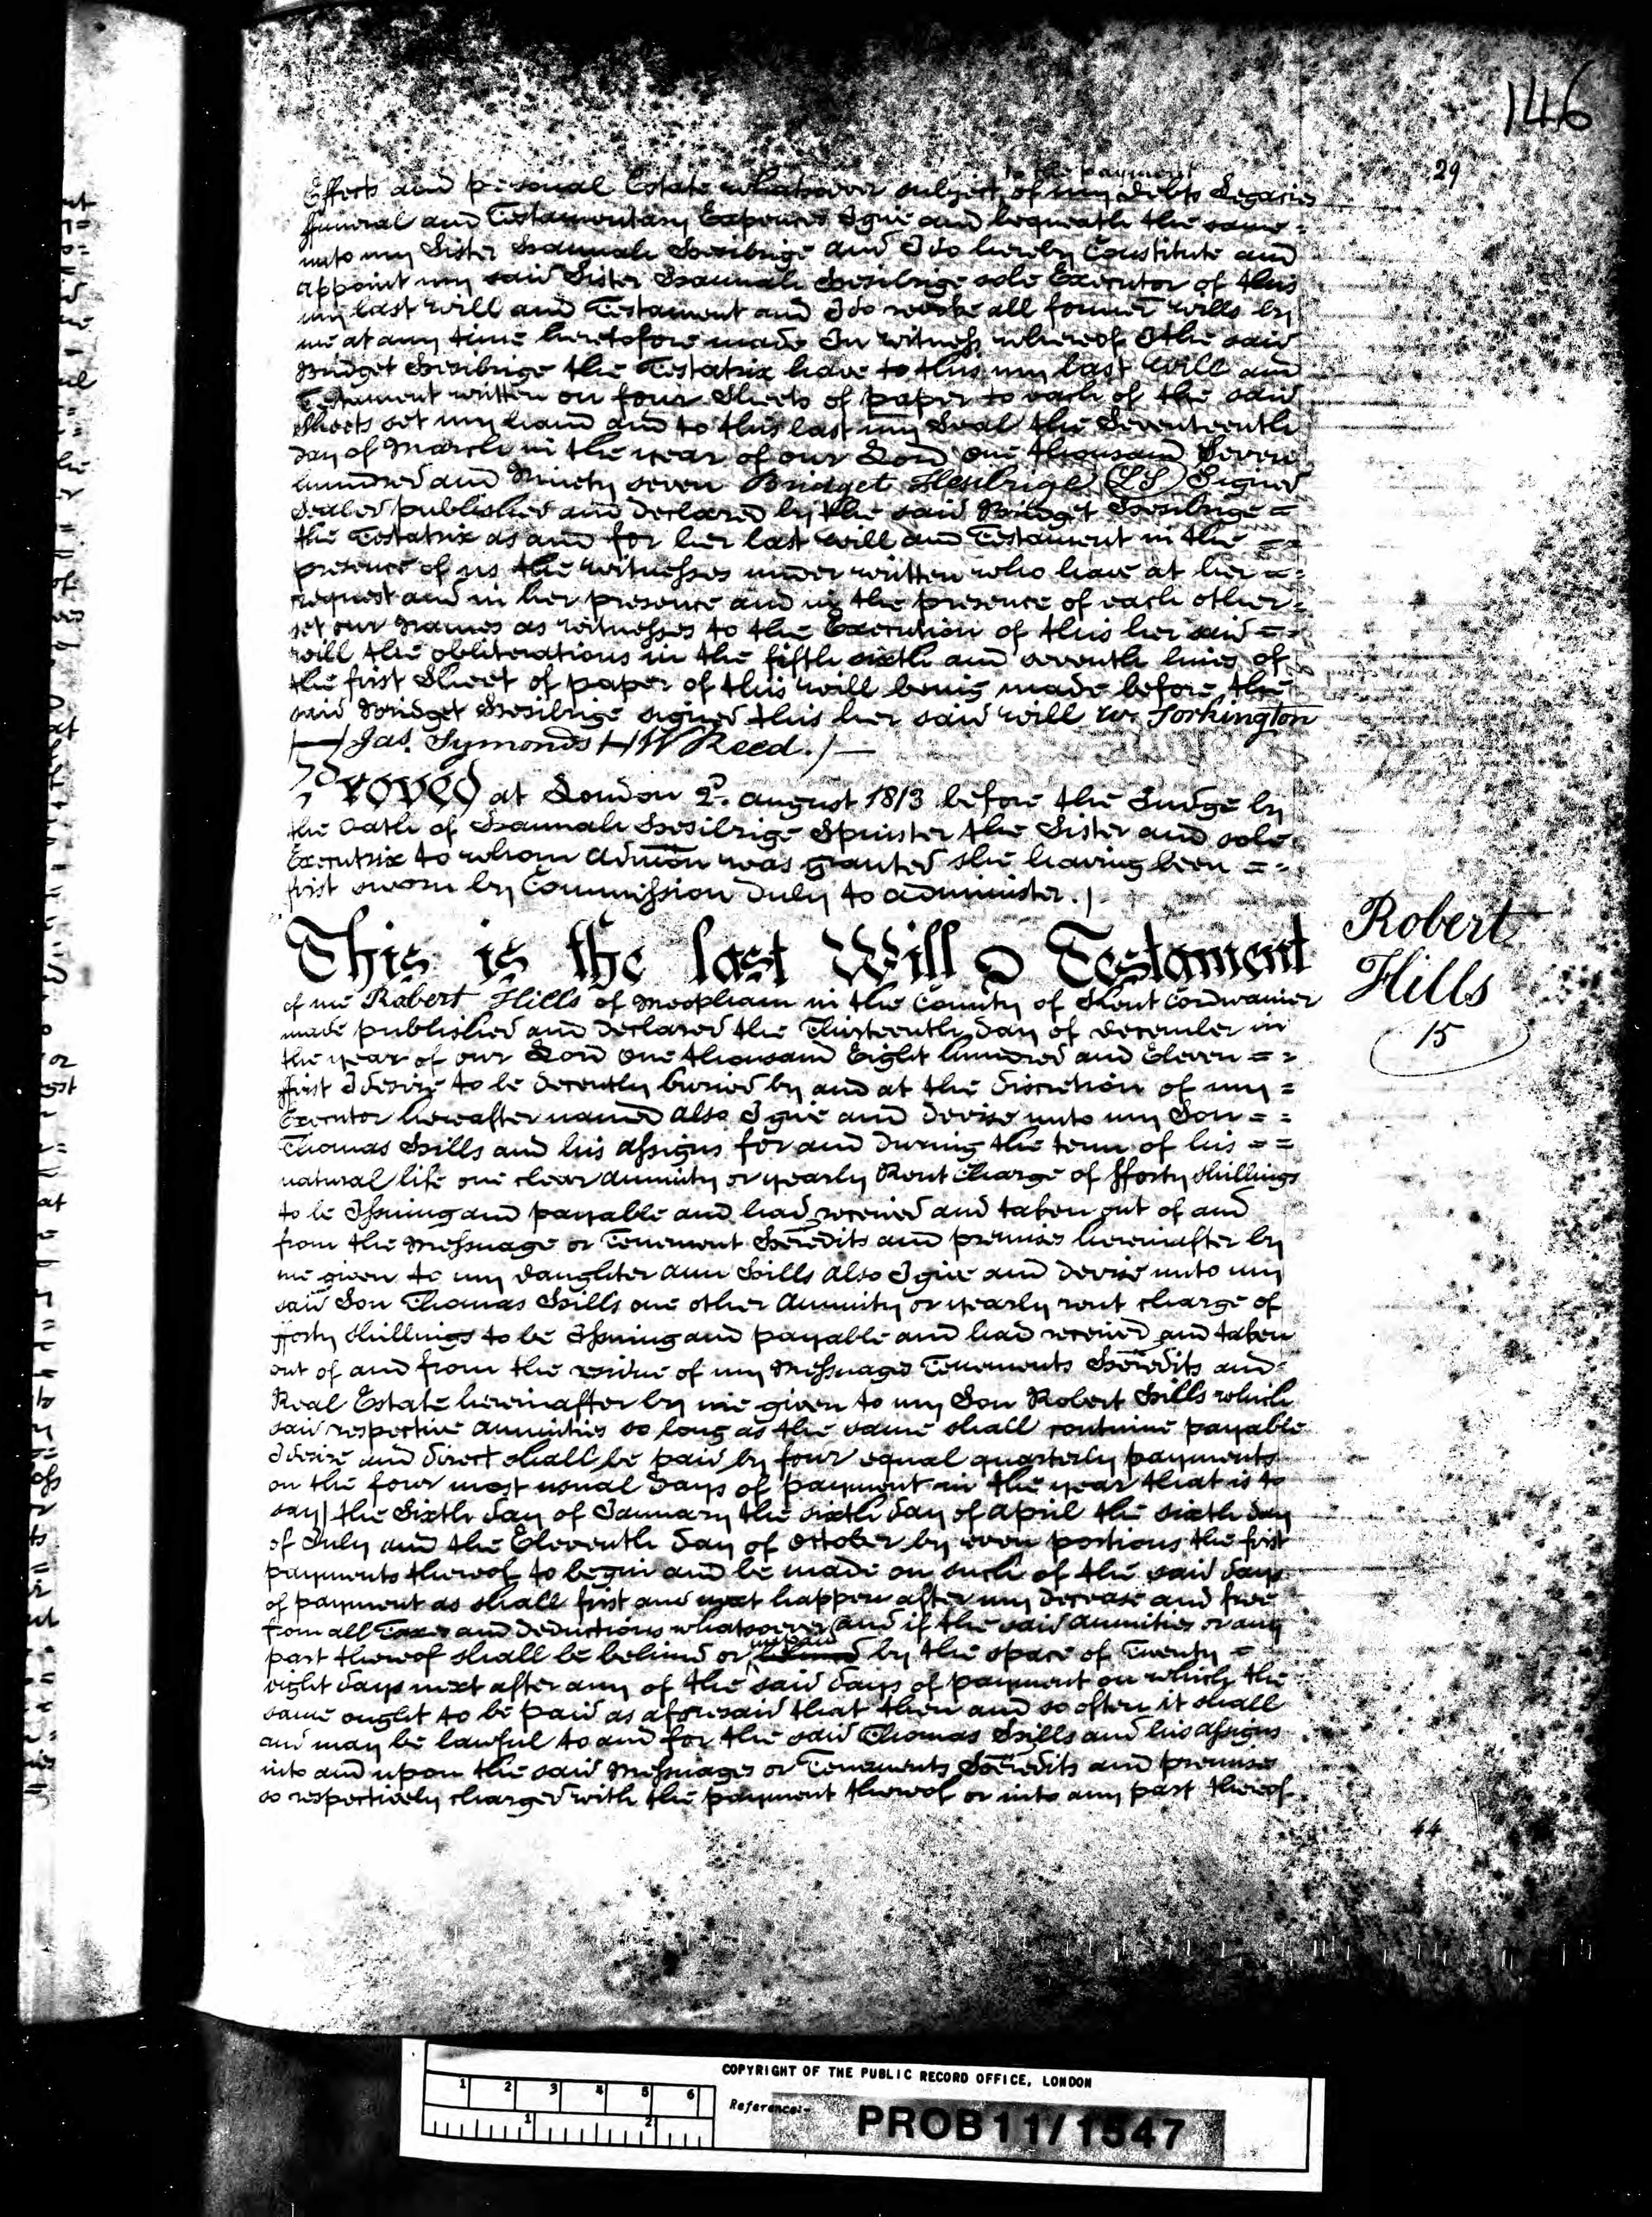 146
29
to the payment
Effects and personal Estate whatsoever subject of my Debts Legacies
ffuneral and Testamentary Expences I give and bequeath the same =
unto my Sister Hannah Hesilrige and I do hereby Constitute and
appoint my said Sister Hannah Hesilrige sole Executor of this
my last will and Testament and I do revoke all former wills by
me at any time heretofore made In witness whereof I the said
Bridget Hesilrige the Testatrix have to this my last Will and
Testament written on four Sheets of paper to each of the said
Sheets set my hand and to this last my Seal the Seventeenth
day of March in the year of our Lord One thousand Seven
hundred and Ninety seven Bridget Hesilrige (LS) Signed
Sealed published and declared by the said Bridget Hesilrige =
the Testatrix as and for her last will and Testament in the =
presence of us the witnesses under written who have at her =
request and in her presence and in the presence of each other =
set our Names as witnesses to the Execution of this her said =
will the obliterations in the fifth sixth and seventh lines of
the first Sheet of paper of this will being made before the
said Bridget Hesilrige signed this her said will Wm Torkington
Jas. Symonds H W Reed. /
Proved at London 2d. August 1813 before the Judge by
the Oath of Hannah Hesilrige Spinster the Sister and sole
Executrix to whom Admon was granted she having been =
first sworn by Commission duly to administer. /
This is the last Will & Testament
Robert
Hills
15
of me Robert Hills of Meopham in the County of Kent Cordwainer
made published and declared the Thirteenth day of December in
the year of our Lord One thousand Eight hundred and Eleven =
ffirst I desire to be decently buried by and at the discretion of my =
Executor hereafter named also I give and devise unto my Son =
Thomas Hills and his assigns for and during the term of his =
natural life one clear annuity or yearly Rent Charge of fforty shillings
to be Issuing and payable and had received and taken out of and
from the Messuage or Tenement Heredits and premises hereinafter by
me given to my daughter Ann Hills also I give and devise unto my
said Son Thomas Hills one other Annuity or yearly rent charge of
fforty shillings to be Issuing and payable and had received and taken
out of and from the residue of my Messuages Tenements Heredits and
Real Estate hereinafter by me given to my Son Robert Hills which
said respective annuities so long as the same shall continue payable
I desire and direct shall be paid by four equal quarterly payments
on the four most usual days of payment in the year that is to
say the Sixth day of January the sixth day of April the sixth day
of July and the Eleventh day of October by even portions the first
payments thereof to begin and be made on such of the said days
of payment as shall first and next happen after my decease and free
from all Taxes and deductions whatsoever and if the said annuities or any
unpaid
part thereof shall be behind or by the space of Twenty =
eight days next after any of the said days of payment on which the
same ought to be paid as aforesaid that then and so often it shall
and may be lawful to and for the said Thomas Hills and his assigns
into and upon the said Messuages or Tenements Heredits and premises
so respectively charged with the payment thereof or into any part thereof
44
COPYRIGHT OF THE PUBLIC RECORD OFFICE, LONDON
1 2 3 4 5 6
Reference:-
PROB 11/1547
1 2